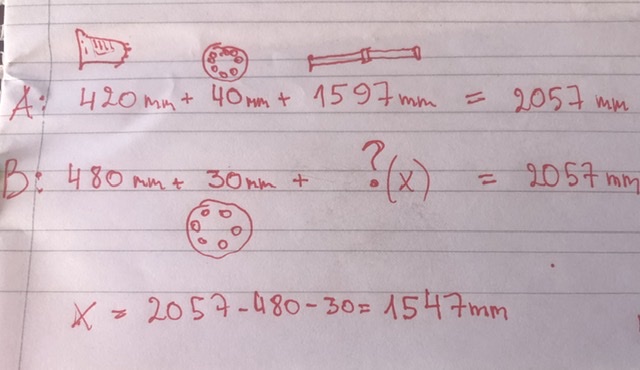 A: 420mm + 40mm + 1597mm = 2057 mm
B: 480mm + 30mm + ? (x) = 2057 mm
X = 2057-480-30=1547mm